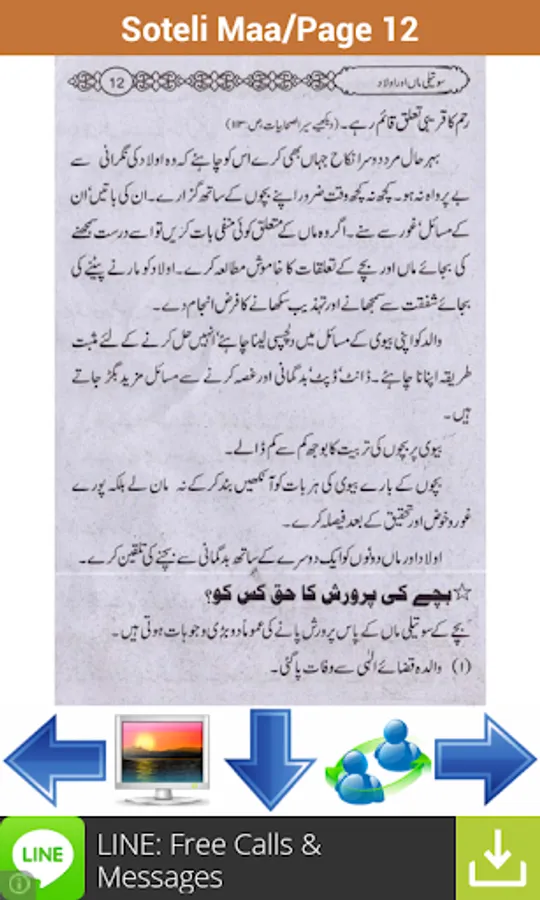 Soteli Maa/Page 12
12
سوتیلی ماں اور اولاد
رحم کا قریبی تعلق قائم رہے۔ (دیکھیے سیر الصحابیات، ص: ۱۱۳)
بہر حال مرد دوسرا نکاح جہاں بھی کرے اس کو چاہئے کہ وہ اولاد کی نگرانی سے
بے پرواہ نہ ہو۔ کچھ نہ کچھ وقت ضرور اپنے بچوں کے ساتھ گزارے۔ ان کی باتیں' ان
کے مسائل' غور سے سنے۔ اگر وہ ماں کے متعلق کوئی منفی بات کریں تو اسے درست سمجھنے
کی بجائے ماں اور بچے کے تعلقات کا خاموش مطالعہ کرے۔ اولاد کو مارنے پیٹنے کی
بجائے شفقت سے سمجھانے اور تہذیب سکھانے کا فرض انجام دے۔
والد کو اپنی بیوی کے مسائل میں دلچسپی لینا چاہئے' انہیں حل کرنے کے لئے مثبت
طریقہ اپنانا چاہئے۔ ڈانٹ' ڈپٹ' بدگمانی اور غصہ کرنے سے مسائل مزید بگڑ جاتے
ہیں۔
بیوی پر بچوں کی تربیت کا بوجھ کم سے کم ڈالے۔
بچوں کے بارے بیوی کی ہر بات کو آنکھیں بند کر کے نہ مان لے بلکہ پورے
غور و خوض اور تحقیق کے بعد فیصلہ کرے۔
اولاد اور ماں دونوں کو ایک دوسرے کے ساتھ بدگمانی سے بچنے کی تلقین کرے۔
☆بچے کی پرورش کا حق کس کو؟
بچے کے سوتیلی ماں کے پاس پرورش پانے کی عموماً دو بڑی وجوہات ہوتی ہیں۔
(۱) والدہ قضائے الٰہی سے وفات پا گئی۔
LINE
LINE: Free Calls &
Messages